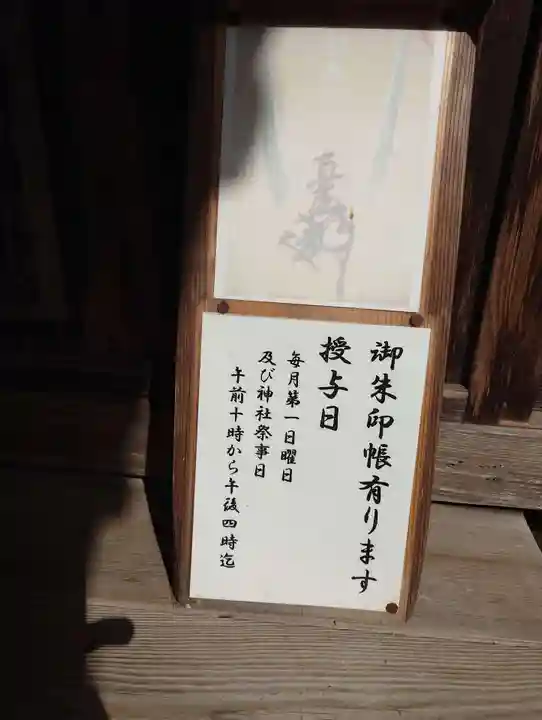 御朱印帳有ります
授与日
毎月第一日曜日
及び神社祭事日
午前十時から午後四時迄